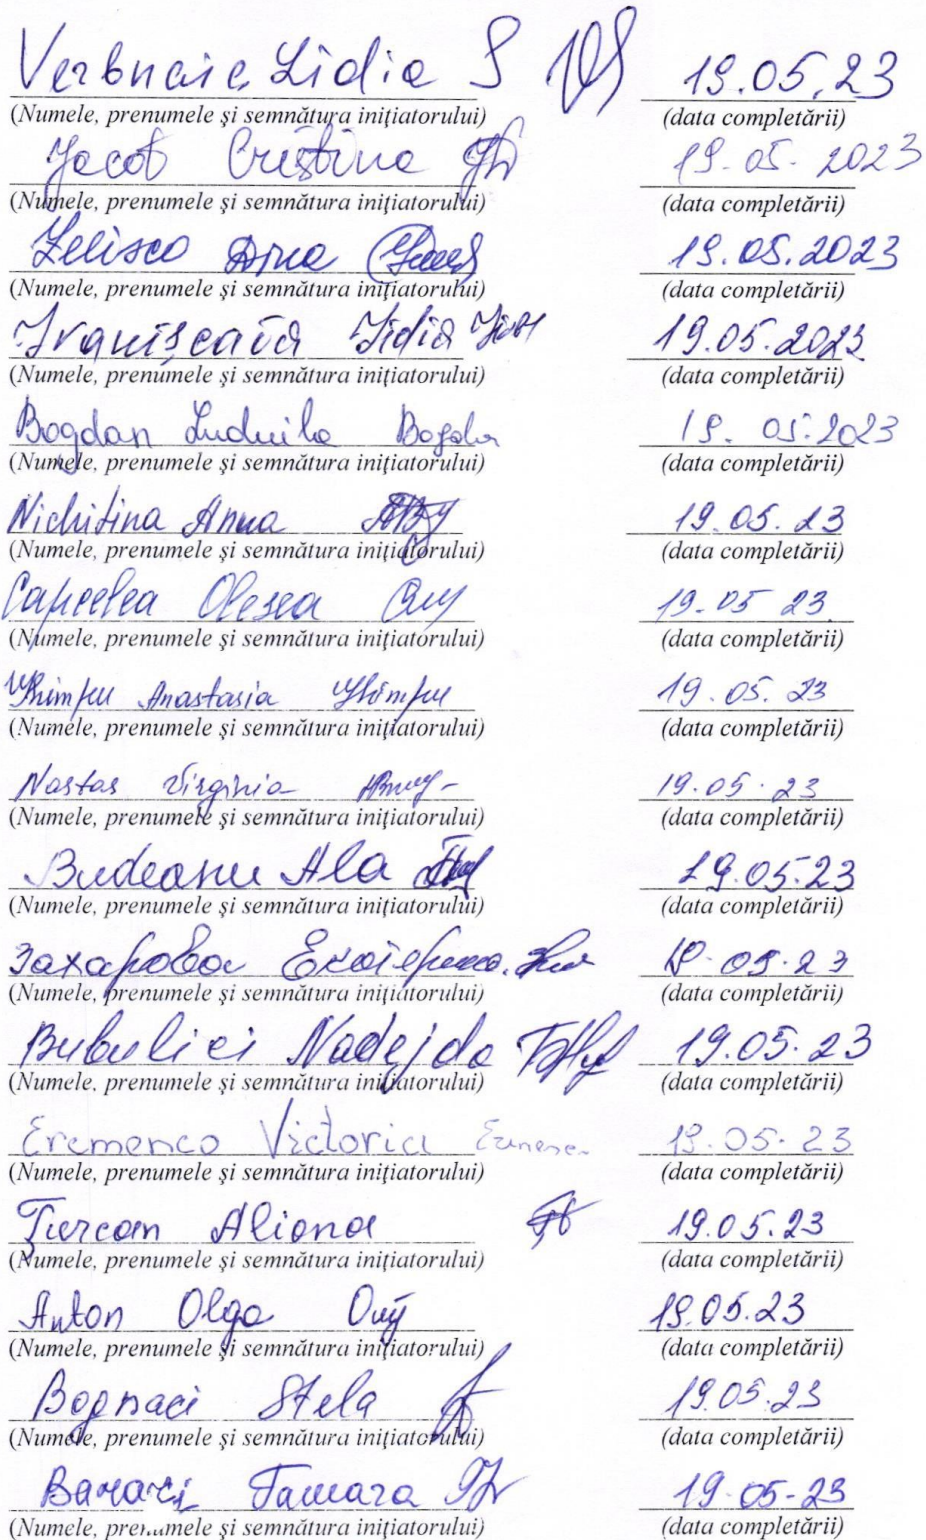 Verbnaia Lidia 19.05.23
(Numele, prenumele și semnătura inițiatorului) (data completării)
Iacob Cristina 19.05.2023
(Numele, prenumele și semnătura inițiatorului) (data completării)
Zelisco Ana 19.05.2023
(Numele, prenumele și semnătura inițiatorului) (data completării)
Lidia 19.05.2023
(Numele, prenumele și semnătura inițiatorului) (data completării)
Bogdan Ludmila Bogdan 19.05.2023
(Numele, prenumele și semnătura inițiatorului) (data completării)
Nichitina Anna 19.05.23
(Numele, prenumele și semnătura inițiatorului) (data completării)
Capcelea Olesea 19.05 23
(Numele, prenumele și semnătura inițiatorului) (data completării)
Ghimpu Anastasia Ghimpu 19.05.23
(Numele, prenumele și semnătura inițiatorului) (data completării)
Nastas Virginia 19.05.23
(Numele, prenumele și semnătura inițiatorului) (data completării)
Budeanu Ala 19.05.23
(Numele, prenumele și semnătura inițiatorului) (data completării)
Захарова Екатерина 19.05.23
(Numele, prenumele și semnătura inițiatorului) (data completării)
Bubulici Nadejda 19.05.23
(Numele, prenumele și semnătura inițiatorului) (data completării)
Eremenco Victoria 19.05.23
(Numele, prenumele și semnătura inițiatorului) (data completării)
Țurcan Aliona 19.05.23
(Numele, prenumele și semnătura inițiatorului) (data completării)
Anton Olga 19.05.23
(Numele, prenumele și semnătura inițiatorului) (data completării)
Bognaci Stela 19.05.23
(Numele, prenumele și semnătura inițiatorului) (data completării)
Tamara 19.05-23
(Numele, prenumele și semnătura inițiatorului) (data completării)